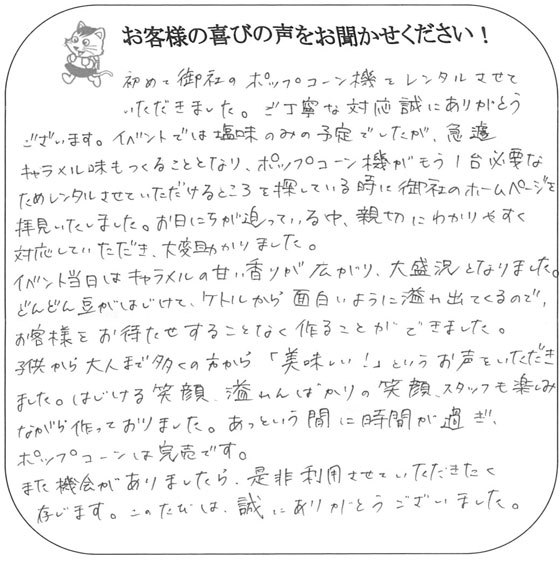 お客様の喜びの声をお聞かせください!
初めて御社のポップコーン機をレンタルさせて
いただきました。ご丁寧な対応誠にありがとう
ございます。イベントでは塩味のみの予定でしたが、急遽
キャラメル味もつくることとなり、ポップコーン機がもう1台必要な
ためレンタルさせていただけるところを探している時に御社のホームページを
拝見いたしました。お日にちが迫っている中、親切にわかりやすく
対応していただき、大変助かりました。
イベント当日はキャラメルの甘い香りが広がり、大盛況となりました。
どんどん豆がはじけて、ケトルから面白いように溢れ出てくるので、
お客様をお待たせすることなく作ることができました。
子供から大人まで多くの方から「美味しい!」というお声をいただき
ました。はじける笑顔、溢れんばかりの笑顔、スタッフも楽しみ
ながら作っておりました。あっという間に時間が過ぎ、
ポップコーンは完売です。
また機会がありましたら、是非利用させていただきたく
存じます。このたびは、誠にありがとうございました。